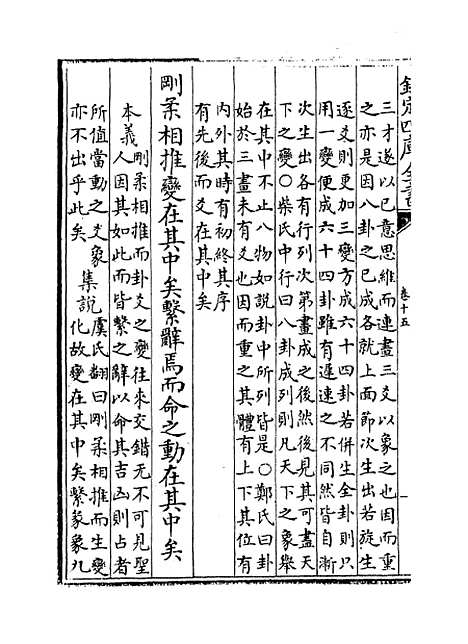 欽定四庫全書
卷十五
三才遂以已意思維而連畫三爻以象之也因而重
之亦是因八卦之已成各就上面節次生出若旋生
逐爻則更加三變方成六十四卦若併生全卦則只
用一變便成六十四卦雖有遲速之不同然皆自漸
次生出各有行列次第畫成之後然後見其可盡天
下之變○柴氏中行曰八卦成列則凡天下之象舉
在其中不止八物如說卦中所列皆是○鄭氏曰卦
始於三畫未有爻也因而重之其體有上下其位有
内外其時有初終其序
有先後而爻在其中矣
剛柔相推變在其中矣繫辭焉而命之動在其中矣
本義剛柔相推而卦爻之變往來交錯无不可見聖
人因其如此而皆繫之辭以命其吉凶則占者
所值當動之爻象
亦不出乎此矣
集說虞氏翻曰剛柔相推而生變
化故變在其中矣繫彖象九